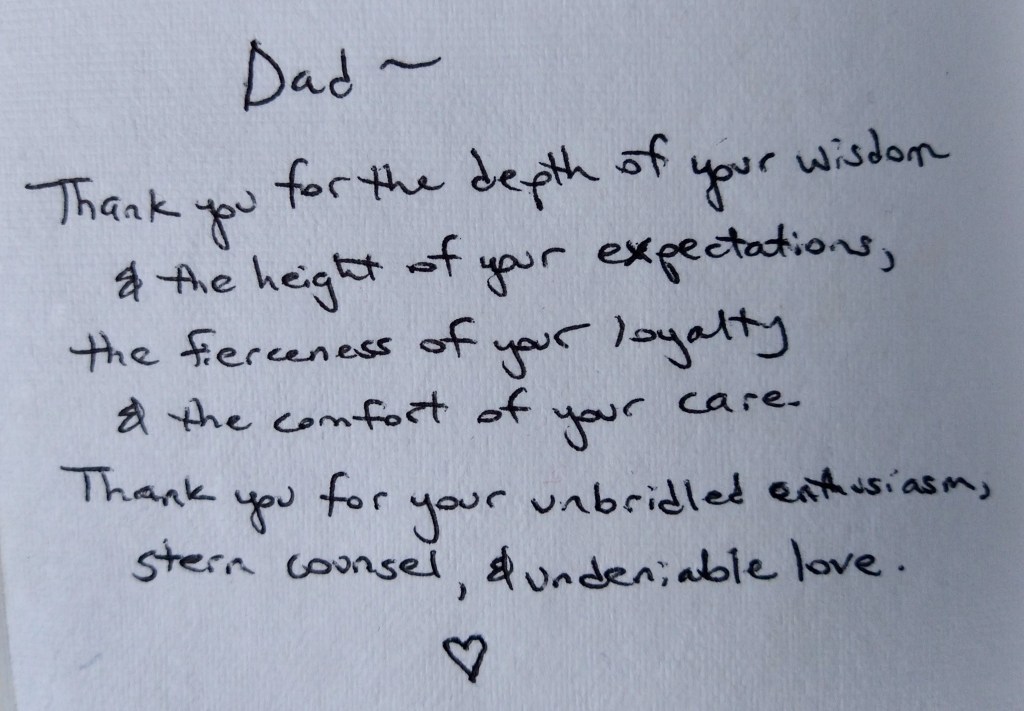 Dad ~
Thank you for the depth of your wisdom
& the height of your expectations,
the fierceness of your loyalty
& the comfort of your care.
Thank you for your unbridled enthusiasm,
stern counsel, & undeniable love.
♡